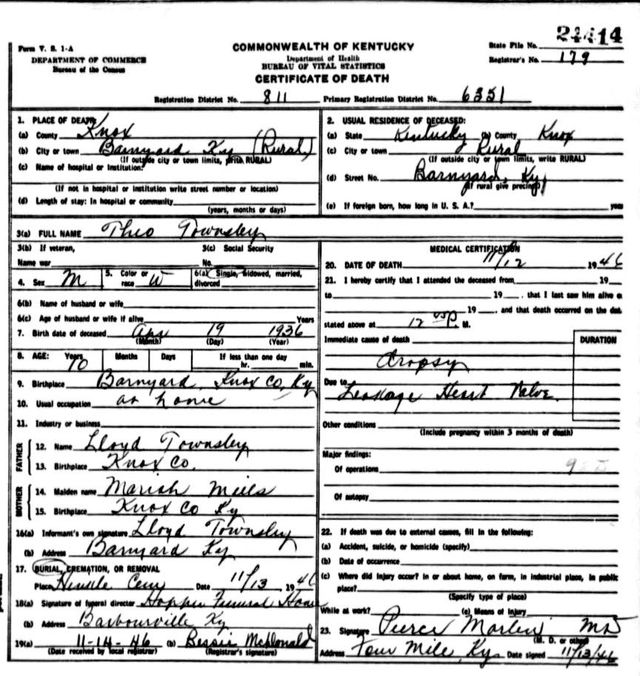 24414
Form V. S. 1-A
DEPARTMENT OF COMMERCE
Bureau of the Census
COMMONWEALTH OF KENTUCKY
Department of Health
BUREAU OF VITAL STATISTICS
CERTIFICATE OF DEATH
State File No.
Registrar's No. 179
Registration District No. 811 Primary Registration District No. 6351
1. PLACE OF DEATH:
(a) County Knox
(b) City or town Barnyard Ky (Rural)
(If outside city or town limits, write RURAL)
(c) Name of hospital or institution:
(If not in hospital or institution write street number or location)
(d) Length of stay: In hospital or community
(years, months or days)
2. USUAL RESIDENCE OF DECEASED:
(a) State Kentucky (b) County Knox
(c) City or town Rural
(If outside city or town limits, write RURAL)
(d) Street No. Barnyard, Ky
(If rural give precinct)
(e) If foreign born, how long in U. S. A.? years
3(a) FULL NAME Theo Townsley
3(b) If veteran, 3(c) Social Security
Name war No.
4. Sex M 5. Color or race W 6(a) Single, widowed, married, divorced
6(b) Name of husband or wife
6(c) Age of husband or wife if alive Years
7. Birth date of deceased Apr 19 1936
(Month) (Day) (Year)
8. AGE: Years Months Days If less than one day
10 hr. min.
9. Birthplace Barnyard, Knox Co, Ky
10. Usual occupation at home
11. Industry or business
FATHER
12. Name Lloyd Townsley
13. Birthplace Knox Co.
MOTHER
14. Maiden name Mariah Mills
15. Birthplace Knox Co Ky
16(a) Informant's own signature Lloyd Townsley
(b) Address Barnyard Ky
17. BURIAL, CREMATION, OR REMOVAL
Place Hinkle Cem Date 11/13 1946
18(a) Signature of funeral director Hopper Funeral Home
(b) Address Barbourville Ky
19(a) 11-14-46 (b) Bessie McDonald
(Date received by local registrar) (Registrar's signature)
MEDICAL CERTIFICATION
20. DATE OF DEATH 11/12 1946
21. I hereby certify that I attended the deceased from 19
to 19 , that I last saw him alive on
19 , and that death occurred on the date
stated above at 12 M.
Immediate cause of death DURATION
dropsy
Due to Leakage Heart Valve
Other conditions
(Include pregnancy within 3 months of death)
Major findings:
Of operations
Of autopsy
22. If death was due to external causes, fill in the following:
(a) Accident, suicide, or homicide (specify)
(b) Date of occurrence
(c) Where did injury occur? in or about home, on farm, in industrial place, in public
place?
(Specify type of place)
While at work? (e) Means of Injury
23. Signature MD
(M. D. or other)
Address Four Mile, Ky Date signed 11/13/46